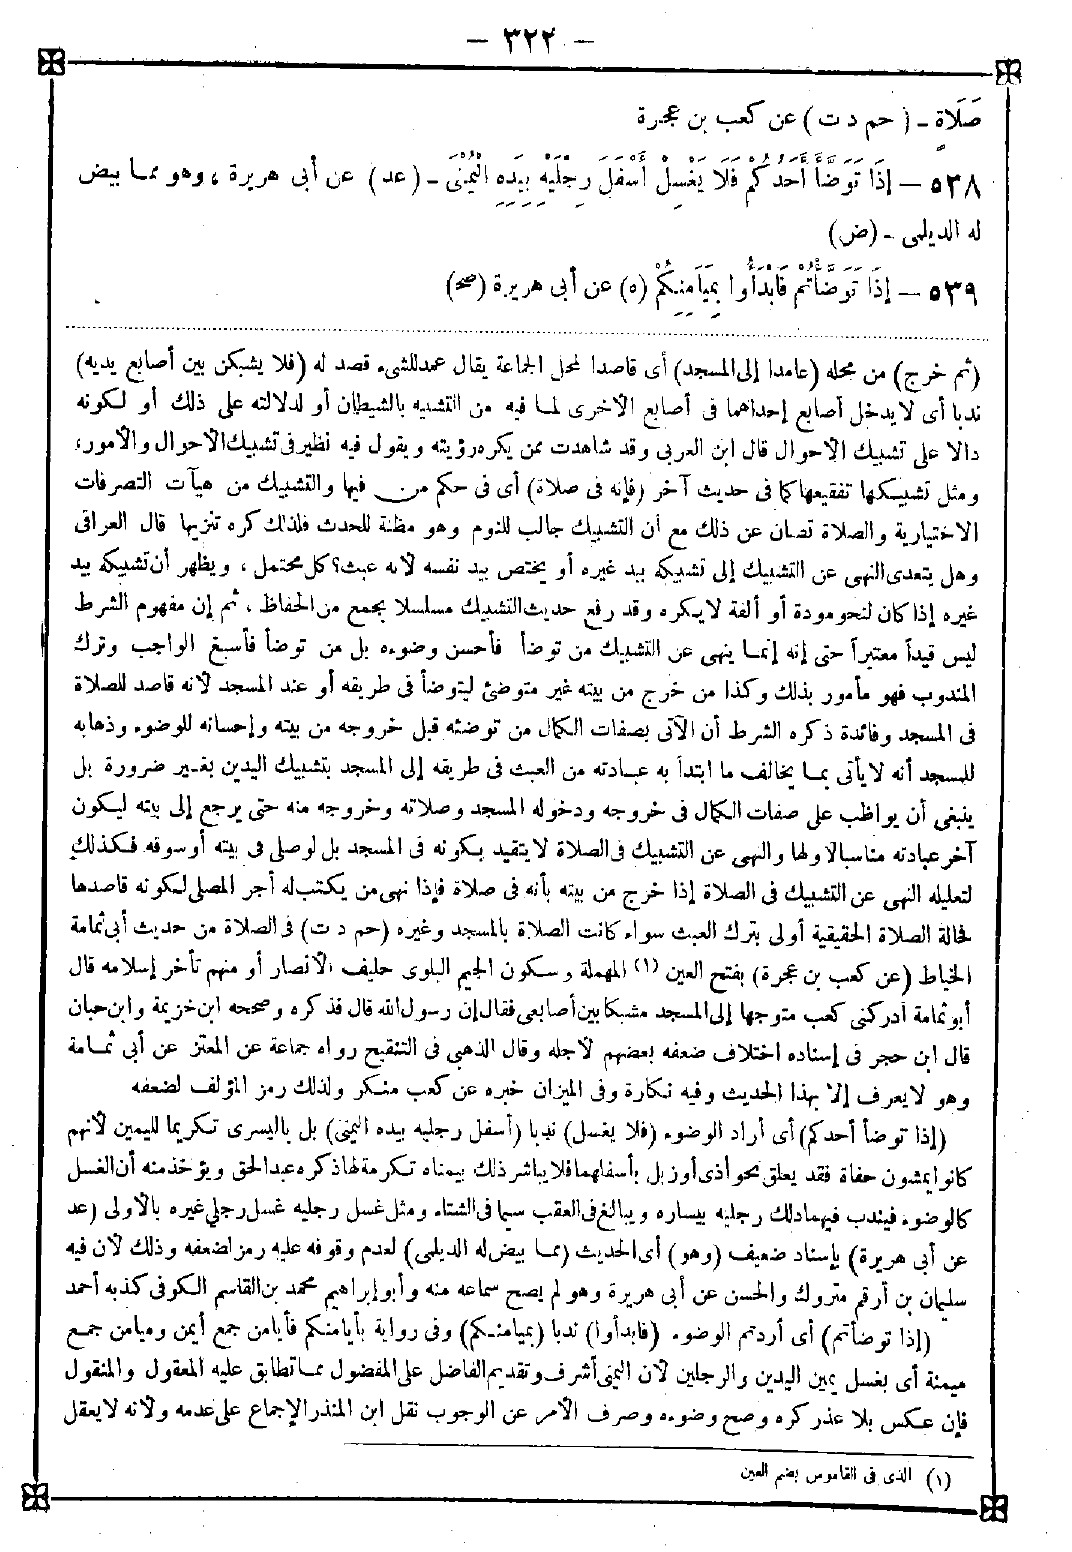 - ٣٢٢ -
صَلَاةٍ - (حم د ت) عن كعب بن عجرة
٥٣٨ — إِذَا تَوَضَّأَ أَحَدُكُمْ فَلَا يَغْسِلْ أَسْفَلَ رِجْلَيْهِ بِيَدِهِ الْيُمْنَى - (عد) عن أبى هريرة ، وهو مما بيض
له الديلمى - (ض)
٥٣٩ — إِذَا تَوَضَّأْتُمْ فَابْدَأُوا بِمَيَامِنِكُمْ (ه) عن أبى هريرة (صح)
(ثم خرج) من محله (عامدا إلى المسجد) أى قاصدا لمحل الجماعة يقال عمد للشىء قصد له (فلا يشبكن بين أصابع يديه)
ندبا أى لا يدخل أصابع إحداهما فى أصابع الأخرى لما فيه من التشبيه بالشيطان أو لدلالته على ذلك أو لكونه
دالا على تشبيك الأحوال قال ابن العربى وقد شاهدت ممن يكره رؤيته ويقول فيه نظير فى تشبيك الأحوال والأمور،
ومثل تشبيكها تفقيعها كما فى حديث آخر (فإنه فى صلاة) أى فى حكم من فيها والتشبيك من هيآت التصرفات
الاختيارية والصلاة تصان عن ذلك مع أن التشبيك جالب للنوم وهو مظنة للحدث فلذلك كره تنزيها قال العراقى
وهل يتعدى النهى عن التشبيك إلى تشبيكه بيد غيره أو يختص بيد نفسه لأنه عبث؟ كل محتمل ، ويظهر أن تشبيكه بيد
غيره إذا كان لنحو مودة أو ألفة لا يكره وقد رفع حديث التشبيك مسلسلا بجمع من الحفاظ ، ثم إن مفهوم الشرط
ليس قيدأ معتبرأ حتى إنه إنما ينهى عن التشبيك من توضأ فأحسن وضوءه بل من توضأ فأسبغ الواجب وترك
المندوب فهو مأمور بذلك وكذا من خرج من بيته غير متوضئ ليتوضأ فى طريقه أو عند المسجد لأنه قاصد للصلاة
فى المسجد وفائدة ذكره الشرط أن الآتى بصفات الكمال من توضئه قبل خروجه من بيته وإحسانه للوضوء وذهابه
للمسجد أنه لا يأتى بما يخالف ما ابتدأ به عبادته من العبث فى طريقه إلى المسجد بتشبيك اليدين بغير ضرورة بل
ينبغى أن يواظب على صفات الكمال فى خروجه ودخوله المسجد وصلاته وخروجه منه حتى يرجع إلى بيته ليكون
آخر عبادته مناسبا لأولها والنهى عن التشبيك فى الصلاة لا يتقيد بكونه فى المسجد بل لو صلى فى بيته أو سوقه فكذلك
لتعليله النهى عن التشبيك فى الصلاة إذا خرج من بيته بأنه فى صلاة فإذا نهى من يكتب له أجر المصلى لكونه قاصدها
فحالة الصلاة الحقيقية أولى بترك العبث سواء كانت الصلاة بالمسجد وغيره (حم د ت) فى الصلاة من حديث أبى ثمامة
الخياط (عن كعب بن عجرة) بفتح العين (١) المهملة وسكون الجيم البلوى حليف الأنصار أو منهم تأخر إسلامه قال
أبو ثمامة أدركنى كعب متوجها إلى المسجد مشبكا بين أصابعى فقال إن رسول الله قال فذكره وصححه ابن خزيمة وابن حبان
قال ابن حجر فى إسناده اختلاف ضعفه بعضهم لأجله وقال الذهبى فى التنقيح رواه جماعة عن المعتز عن أبى ثمامة
وهو لا يعرف إلا بهذا الحديث وفيه نكارة وفى الميزان خبره عن كعب منكر ولذلك رمز المؤلف لضعفه
(إذا توضأ أحدكم) أى أراد الوضوء (فلا يغسل) ندبا (أسفل رجليه بيده اليمنى) بل باليسرى تكريما لليمين لأنهم
كانوا يمشون حفاة فقد يعلق نحو أذى أو زبل بأسفلهما فلا يباشر ذلك بيمناه تكرمة لها ذكره عبد الحق ويؤخذ منه أن الغسل
كالوضوء فيندب فيهما دلك رجليه بيساره ويبالغ فى العقب سيما فى الشتاء ومثل غسل رجليه غسل رجلى غيره بالأولى (عد
عن أبى هريرة) بإسناد ضعيف (وهو) أى الحديث (مما بيض له الديلمى) لعدم وقوفه عليه رمز لضعفه وذلك لأن فيه
سليمان بن أرقم متروك والحسن عن أبى هريرة وهو لم يصح سماعه منه وأبو إبراهيم محمد بن القاسم الكوفى كذبه أحمد
(إذا توضأتم) أى أردتم الوضوء (فابدأوا) ندبا (بميامنكم) وفى رواية بأيامنكم فأيامن جمع أيمن وميامن جمع
ميمنة أى بغسل يمين اليدين والرجلين لأن اليمنى أشرف وتقديم الفاضل على المفضول مما تطابق عليه المعقول والمنقول
فإن عكس بلا عذر كره وصح وضوءه وصرف الأمر عن الوجوب نقل ابن المنذر الإجماع على عدمه ولأنه لا يعقل
(١) الذى فى القاموس بضم العين